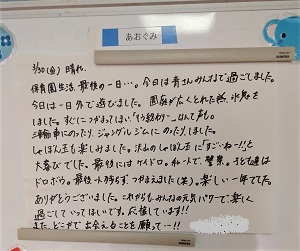 あおぐみ
3/30(金) 晴れ。
保育園生活、最後の一日…。今日は青さんみんなで過ごしました。
今日は一日外で遊びました。園庭が広くとれた為、氷鬼を
しました。すぐにつかまってしまい
三輪車にのったり、ジャングルジムにのったりしました。
しゃぼん玉も楽しみました。沢山のしゃぼん玉に「すごいねー!」と
大喜びでした。最後にはケイドロ。
ドロボウ。最後
つかまえました(笑)。楽しい一年でした。
ありがとうございました。これからもみんなの元気パワーで楽しく
過ごしていってほしいです。応援しています!!
また、どこかで出会えることを願って…!!